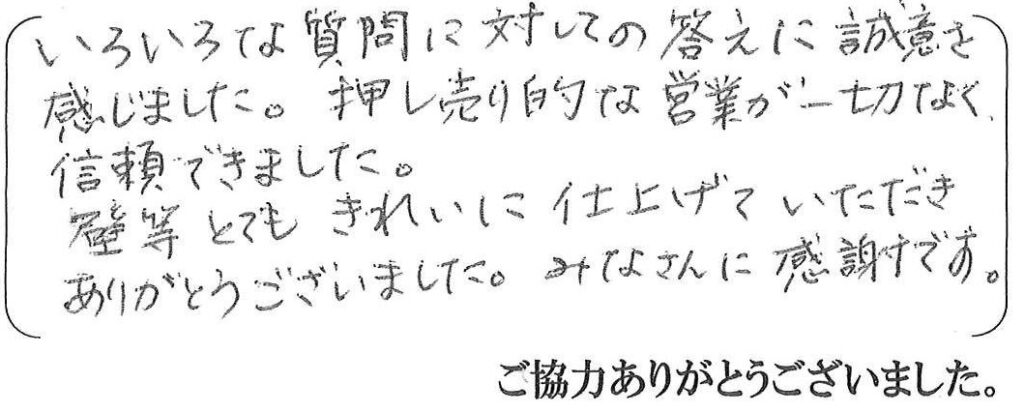 いろいろな質問に対しての答えに誠意を
感じました。押し売り的な営業が一切なく、
信頼できました。
壁等とてもきれいに仕上げていただき
ありがとうございました。みなさんに感謝です。
ご協力ありがとうございました。